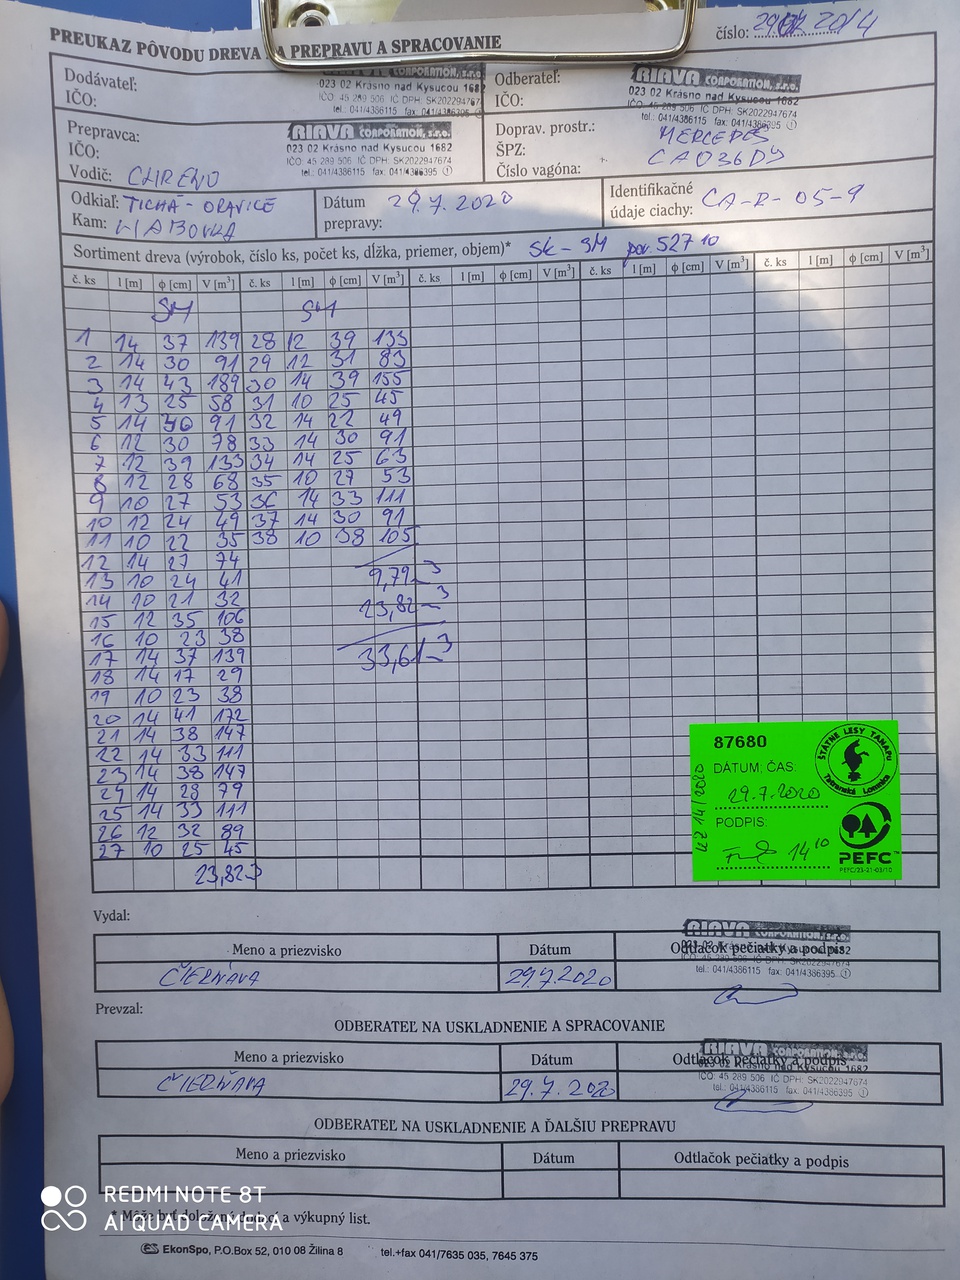 PREUKAZ PÔVODU DREVA NA PREPRAVU A SPRACOVANIE
číslo: 2014
Dodávateľ:
IČO:
RIAVA CORPORATION, s.r.o.
023 02 Krásno nad Kysucou 1682
IČO: 45 289 506 IČ DPH: SK2022947674
tel.: 041/4386115 fax: 041/4386395
Odberateľ:
IČO:
RIAVA CORPORATION, s.r.o.
023 02 Krásno nad Kysucou 1682
IČO: 45 289 506 IČ DPH: SK2022947674
tel.: 041/4386115 fax: 041/4386395 ①
Prepravca:
IČO:
Vodič: CHRENO
RIAVA CORPORATION, s.r.o.
023 02 Krásno nad Kysucou 1682
IČO: 45 289 506 IČ DPH: SK2022947674
tel.: 041/4386115 fax: 041/4386395 ①
Doprav. prostr.: MERCEDES
ŠPZ: CA036DY
Číslo vagóna:
Odkiaľ: TICHÁ - ORAVICE
Kam: HLADOVKA
Dátum prepravy: 29.7.2020
Identifikačné
údaje ciachy: CA-R-05-9
Sortiment dreva (výrobok, číslo ks, počet ks, dĺžka, priemer, objem)* SK - SM por. 527 10
č. ks l [m] ϕ [cm] V [m³] č. ks l [m] ϕ [cm] V [m³] č. ks l [m] ϕ [cm] V [m³] č. ks l [m] ϕ [cm] V [m³] č. ks l [m] ϕ [cm] V [m³]
SM SM
1 14 37 139 28 12 39 133
2 14 30 91 29 12 31 83
3 14 43 189 30 14 39 155
4 13 25 58 31 10 25 45
5 14 30 91 32 14 22 49
6 12 30 78 33 14 30 91
7 12 39 133 34 14 25 63
8 12 28 68 35 10 27 53
9 10 27 53 36 14 33 111
10 12 24 49 37 14 30 91
11 10 22 35 38 10 38 105
12 14 27 74
13 10 24 41 9,79 m3
14 10 21 32 23,82 m3
15 12 35 106
16 10 23 38
17 14 37 139 33,61 m3
18 14 17 29
19 10 23 38
20 14 41 172
21 14 38 147
22 14 33 111
23 14 38 147
24 14 28 79
25 14 33 111
26 12 32 89
27 10 25 45
23,82
87680
DÁTUM; ČAS:
29.7.2020
PODPIS:
14 10
14/2020
ŠTÁTNE LESY TANAPU
Tatranská Lomnica
PEFC™
PEFC/23-21-03/10
Vydal:
Meno a priezvisko Dátum Odtlačok pečiatky a podpis
ČIERŇAVA 29.7.2020
RIAVA CORPORATION, s.r.o.
023 02 Krásno nad Kysucou 1682
IČO: 45 289 506 IČ DPH: SK2022947674
tel.: 041/4386115 fax: 041/4386395 ①
Prevzal:
ODBERATEĽ NA USKLADNENIE A SPRACOVANIE
Meno a priezvisko Dátum Odtlačok pečiatky a podpis
ČIERŇAVA 29.7.2020
RIAVA CORPORATION, s.r.o.
023 02 Krásno nad Kysucou 1682
IČO: 45 289 506 IČ DPH: SK2022947674
tel.: 041/4386115 fax: 041/4386395 ①
ODBERATEĽ NA USKLADNENIE A ĎALŠIU PREPRAVU
Meno a priezvisko Dátum Odtlačok pečiatky a podpis
* Môže byť doložený a výkupný list.
EkonSpo, P.O.Box 52, 010 08 Žilina 8 tel.+fax 041/7635 035, 7645 375
REDMI NOTE 8T
AI QUAD CAMERA